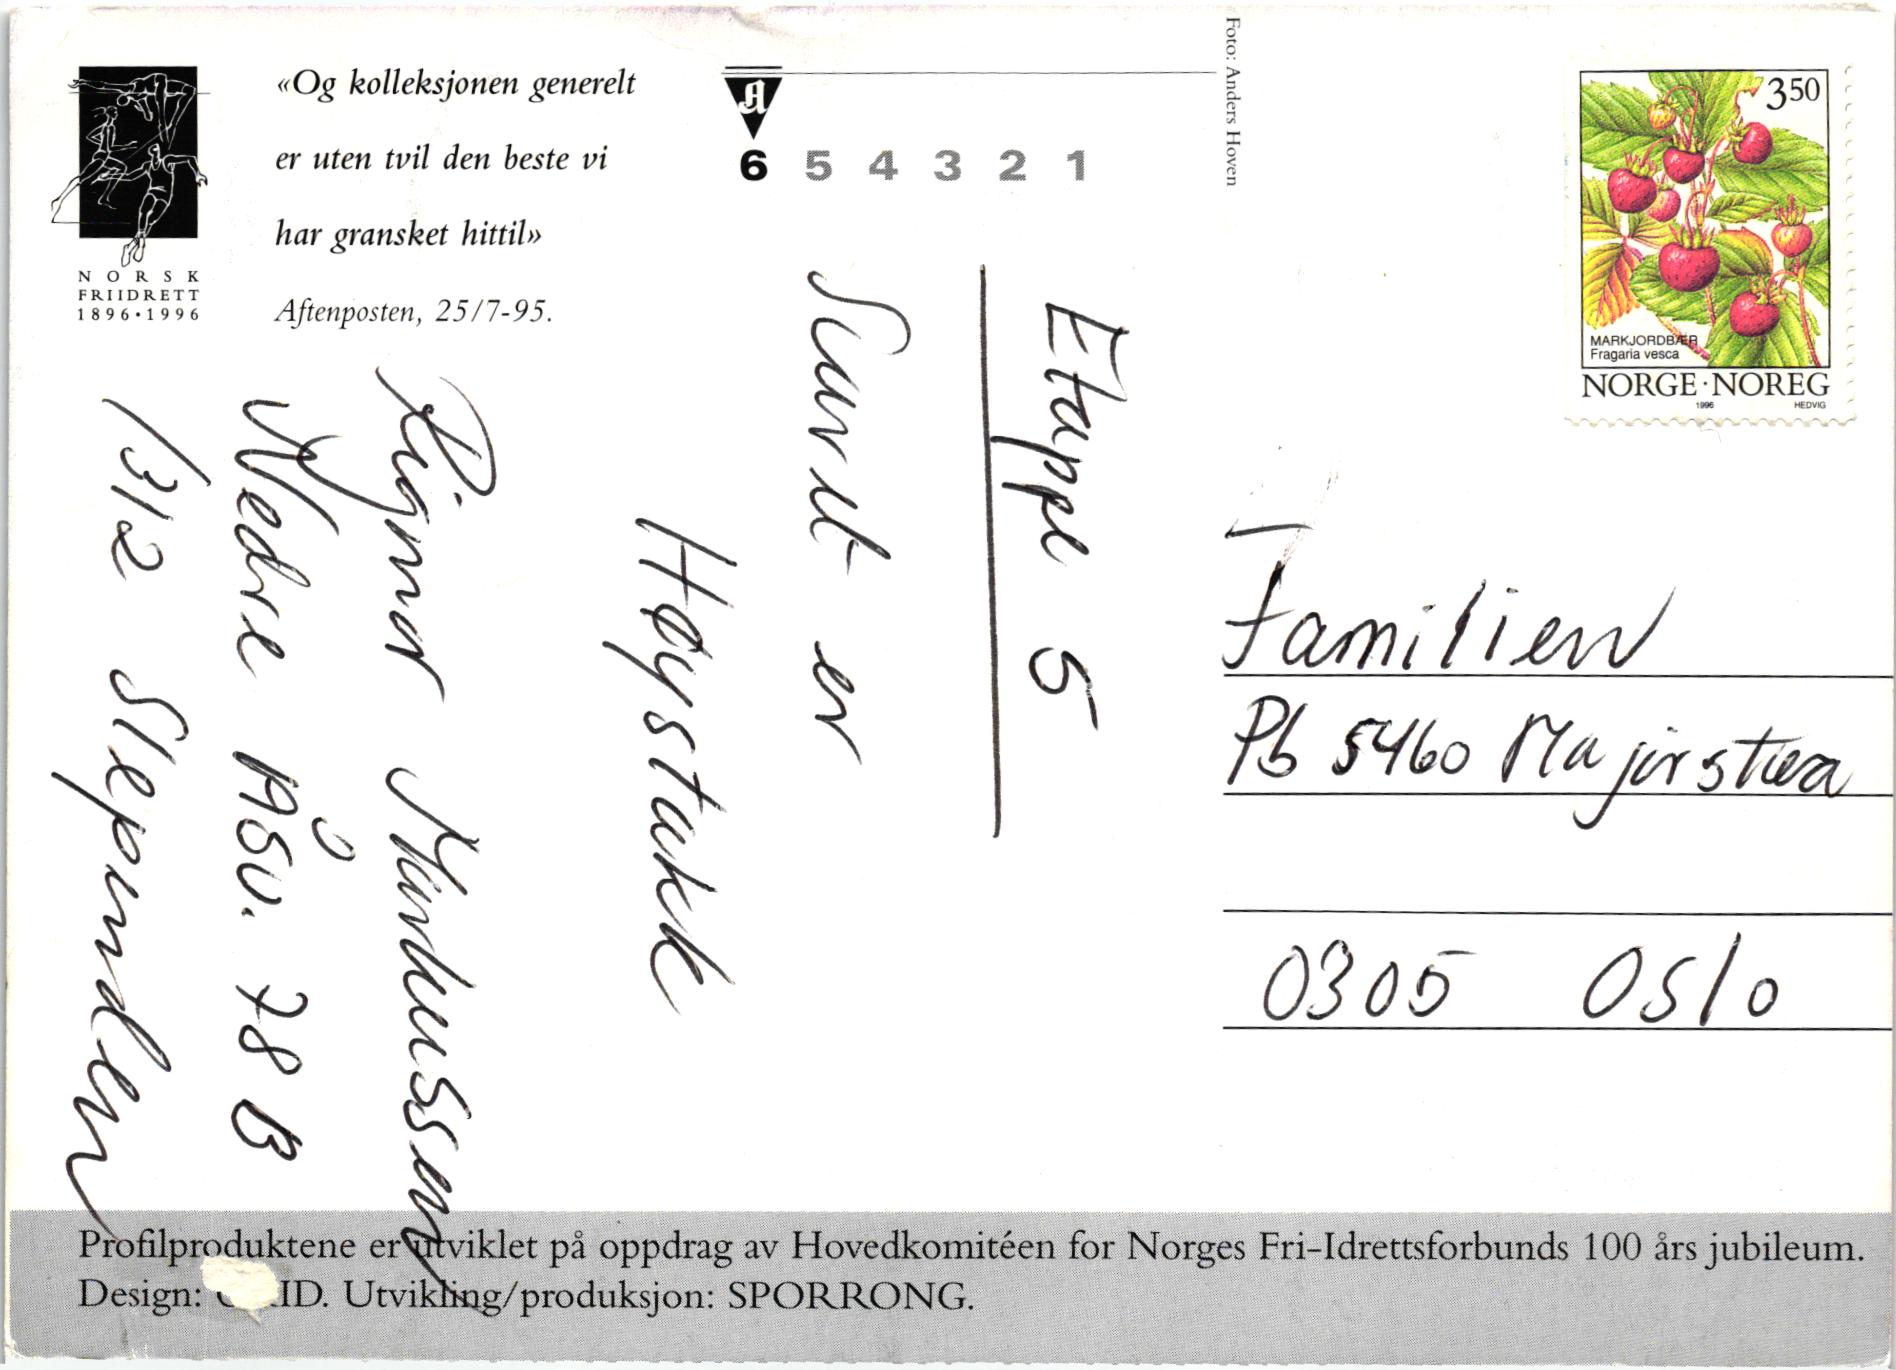 «Og kolleksjonen generelt
er uten tvil den beste vi
har gransket hittil»
Aftenposten, 25/7-95.
NORSK
FRIIDRETT
1896•1996
A
6 5 4 3 2 1
Foto: Anders Hoven
350
MARKJORDBÆR
Fragaria vesca
NORGE·NOREG
1996 HEDVIG
Etappe 5
Svaret er
Høystakk
Ragnar
Nedre Åsv. 78 B
1312 Slependen
Familien
Pb 5460 Majorstua
0305 Oslo
Profilproduktene er utviklet på oppdrag av Hovedkomitéen for Norges Fri-Idrettsforbunds 100 års jubileum.
Design: ID. Utvikling/produksjon: SPORRONG.